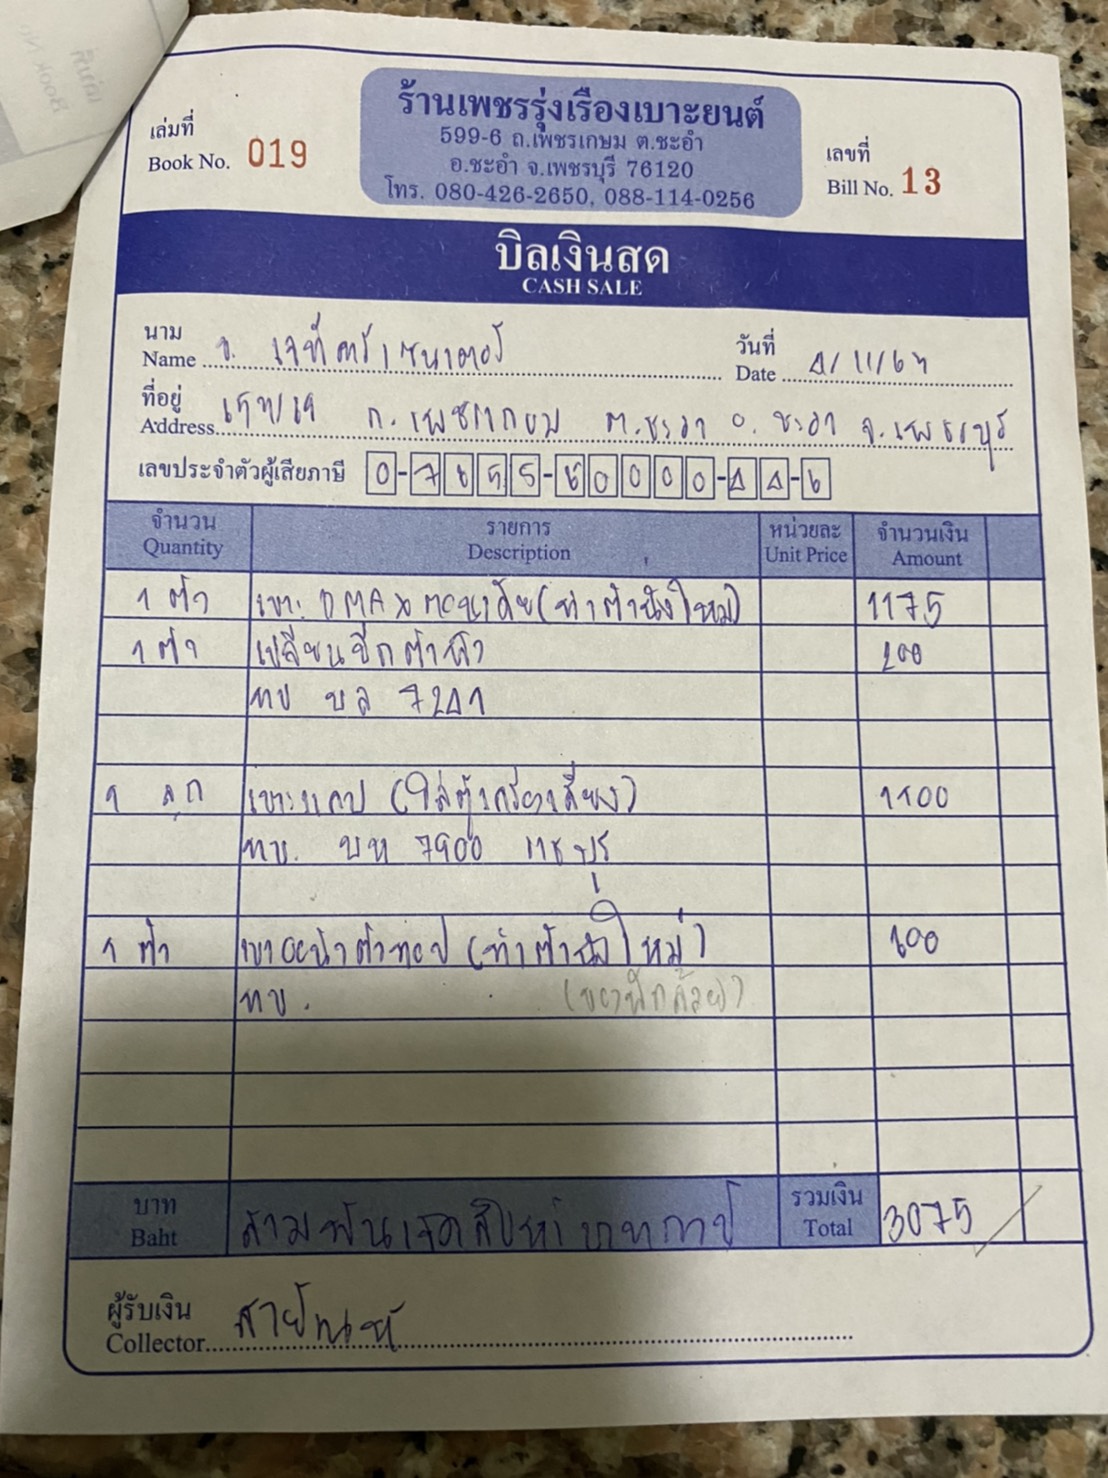 ร้านเพชรรุ่งเรืองเบาะยนต์
599-6 ถ.เพชรเกษม ต.ชะอำ
อ.ชะอำ จ.เพชรบุรี 76120
โทร. 080-426-2650, 088-114-0256
เล่มที่
Book No. 019
เลขที่
Bill No. 13
บิลเงินสด
CASH SALE
นาม
Name
วันที่
Date 4/11/67
ที่อยู่
Address ถ.เพชรเกษม ต.ชะอำ อ.ชะอำ จ.เพชรบุรี
เลขประจำตัวผู้เสียภาษี 0-7655-60000-44-6
จำนวน รายการ หน่วยละ จำนวนเงิน
Quantity Description Unit Price Amount
1 ตัว เบาะ DMAX (ทำตัวนั่งใหม่) 1175
1 ตัว เปลี่ยนอีกตัว 200
ทบ บล 7241
1 ลูก เบาะแคป 1100
ทบ. บห 7900 เพชรบุรี
1 ตัว (ทำตัวนั่งใหม่) 600
ทบ.
บาท
Baht สามพันเจ็ดสิบห้าบาทถ้วน
รวมเงิน
Total 3075
ผู้รับเงิน
Collector สายัณห์